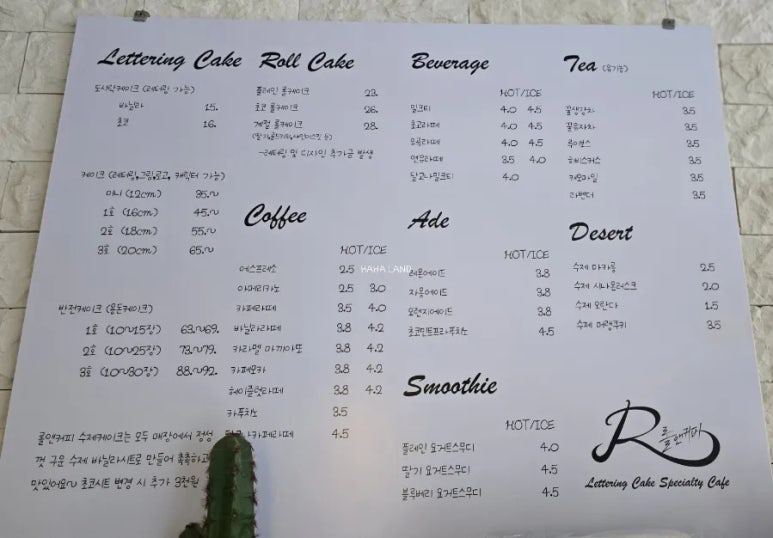 Lettering Cake
도시락케이크 (레터링 가능)
바닐라 15.
초코 16.
케이크 (레터링,그림,로고, 캐릭터 가능)
미니 (12cm) 35.~
1호 (16cm) 45.~
2호 (18cm) 55.~
3호 (20cm) 65.~
반전케이크 (용돈케이크)
1호 (10~15장) 63.~69.
2호 (10~25장) 73.~79.
3호 (10~30장) 88.~92.
롤앤커피 수제케이크는 모두 매장에서 정성
껏 구운 수제 바닐라시트로 만들어 촉촉하고
맛있어요~ 초코시트 변경 시 추가 3천원
Roll Cake
플레인 롤케이크 23.
초코 롤케이크 26.
계절 롤케이크 28.
-레터링 및 디자인 추가금 발생
Coffee
HOT/ICE
에스프레소 2.5
아메리카노 2.5 3.0
카페라떼 3.5 4.0
바닐라라떼 3.8 4.2
카라멜 마끼아또 3.8 4.2
카페모카 3.8 4.2
헤이즐넛라떼 3.8 4.2
카푸치노 3.5
카페라떼 4.5
Beverage
HOT/ICE
밀크티 4.0 4.5
초코라떼 4.0 4.5
4.0 4.5
연유라떼 3.5 4.0
달고나밀크티 4.0
Ade
HOT/ICE
레몬에이드 3.8
자몽에이드 3.8
오렌지에이드 3.8
초코민트프라푸치노 4.5
Smoothie
HOT/ICE
플레인 요거트스무디 4.0
딸기 요거트스무디 4.5
블루베리 요거트스무디 4.5
Tea (유기농)
HOT/ICE
꿀생강차 3.5
꿀유자차 3.5
루이보스 3.5
히비스커스 3.5
카모마일 3.5
라벤더 3.5
Desert
수제 마카롱 2.5
수제 시나몬러스크 2.0
수제 오란다 1.5
수제 머랭쿠키 3.5
R 롤앤커피
Lettering Cake Specialty Cafe
HAHA LAND